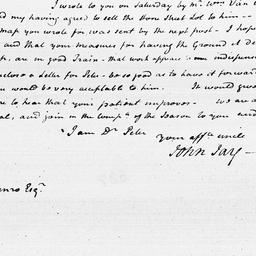 I wrote to you on Saturday by Mr. Wm. Van
my having agreed to sell the Dover Street Lot to him --
map you wrote for was sent by the next post - I hope
and that your measures for having the Ground
are in good Train - that work appears indispens
enclose a Letter for Peter - be so good as to have it forward
would be very acceptable to him. It would give
to hear that your patient improves - we are
and join in the compts. of the Season to you and
I am Dr. Peter
your affte. uncle
John Jay -
Esqr.